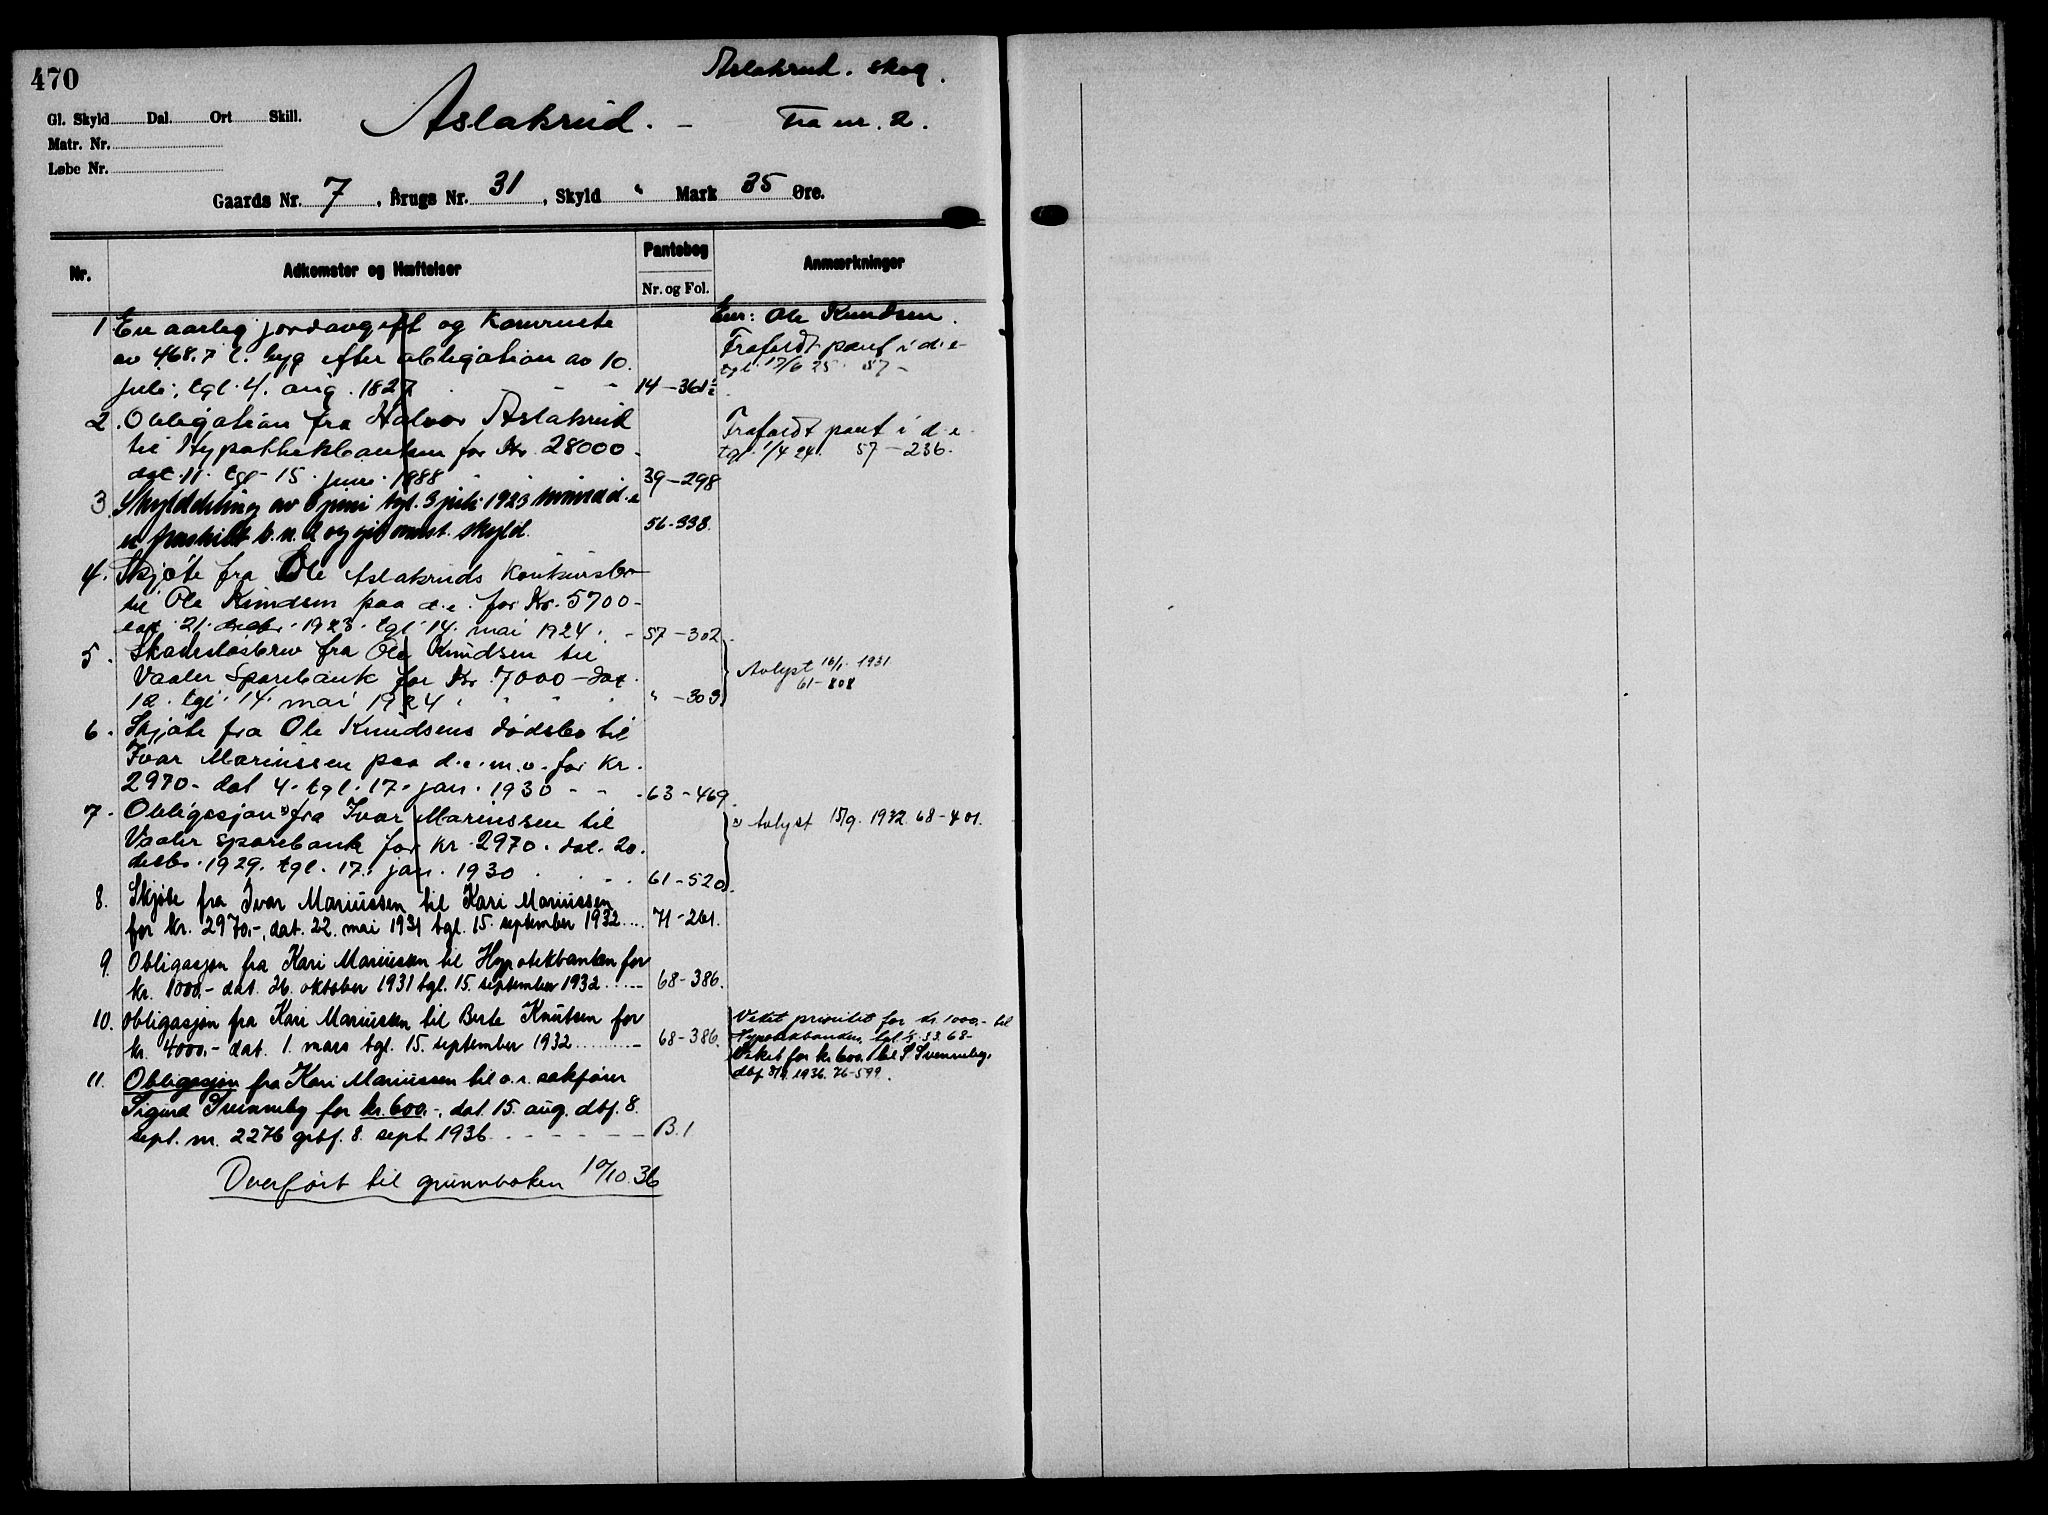 470
Aslakrud. skog.
Gl. Skyld Dal. Ort Skill.
Aslakrud. – Fra nr. 2.
Matr. Nr.
Løbe Nr.
Gaards Nr. 7, Brugs Nr. 31, Skyld " Mark 35 Øre.
Nr. Adkomster og Hæftelser Pantebog Nr. og Fol. Anmærkninger
1 En aarlig jordavgift og kornrente
av 468.7 l. byg efter obligation av 10.
juli, tgl. 4. aug. 1827 14–361
Eier: Ole Knudsen.
Frafaldt pant i d. e.
tgl. 17/6 25. 57–
2. Obligation fra Halvor Aslakrud
til Hypothekbanken for Kr. 28000.
dat. 11. tgl– 15. juni 1888 39–298
Frafaldt pant i d. e.
tgl. 1/4 24. 57–236.
3. Skylddeling av juni tgl. 3 juli 1923 d. e
er fraskilt b. n. 2 og git skyld. 56–338.
4. Skjøte fra Ole Aslakruds konkursbo
til Ole Knudsen paa d. e. for Kr. 5700–
dat. 21. decbr. 1923. tgl. 14. mai 1924. 57–302.
5. Skadesløsbrev fra Ole Knudsen til
Vaaler Sparebank for Kr. 7000– dat.
12. tgl. 14. mai 1924 " –303
Avlyst 16/1. 1931
61–808
6. Skjøte fra Ole Knudsens dødsbo til
Ivar Mariussen paa d. e. m. v. for kr.
2970– dat 4. tgl. 17. jan. 1930 – – . 63–469.
7. Obligasjon x) fra Ivar Mariussen til
Vaaler sparebank for kr. 2970. dat. 20.
desbr. 1929. tgl. 17. jan. 1930 61–520.
x) Avlyst 15/9. 1932. 68–401.
8. Skjøte fra Ivar Mariussen til Kari Mariussen
for kr. 2970.–, dat. 22. mai 1931 tgl. 15. september 1932.... 71–261.
9. Obligasjon fra Kari Mariussen til Hypotekbanken for
kr. 1000.– dat. 26. oktober 1931 tgl. 15. september 1932. 68–386.
10. Obligasjon fra Kari Mariussen til Berte Knutsen for
kr. 4000.– dat. 1. mars tgl. 15. september 1932 68–386.
Veket prioritet for kr. 1000.– til
Hypotekbanken, tgl. 33. 68–
Veket for kr. 600.– til S. Svenneby.
dbf. 8/9. 1936. 76–599.
11. Obligasjon fra Kari Mariussen til o.r. sakfører
Sigurd Svenneby for kr. 600.–, dat. 15. aug. dbf. 8.
sept. nr. 2276 grbf. 8. sept 1936. B. 1
Overført til grunnboken 10/10. 36